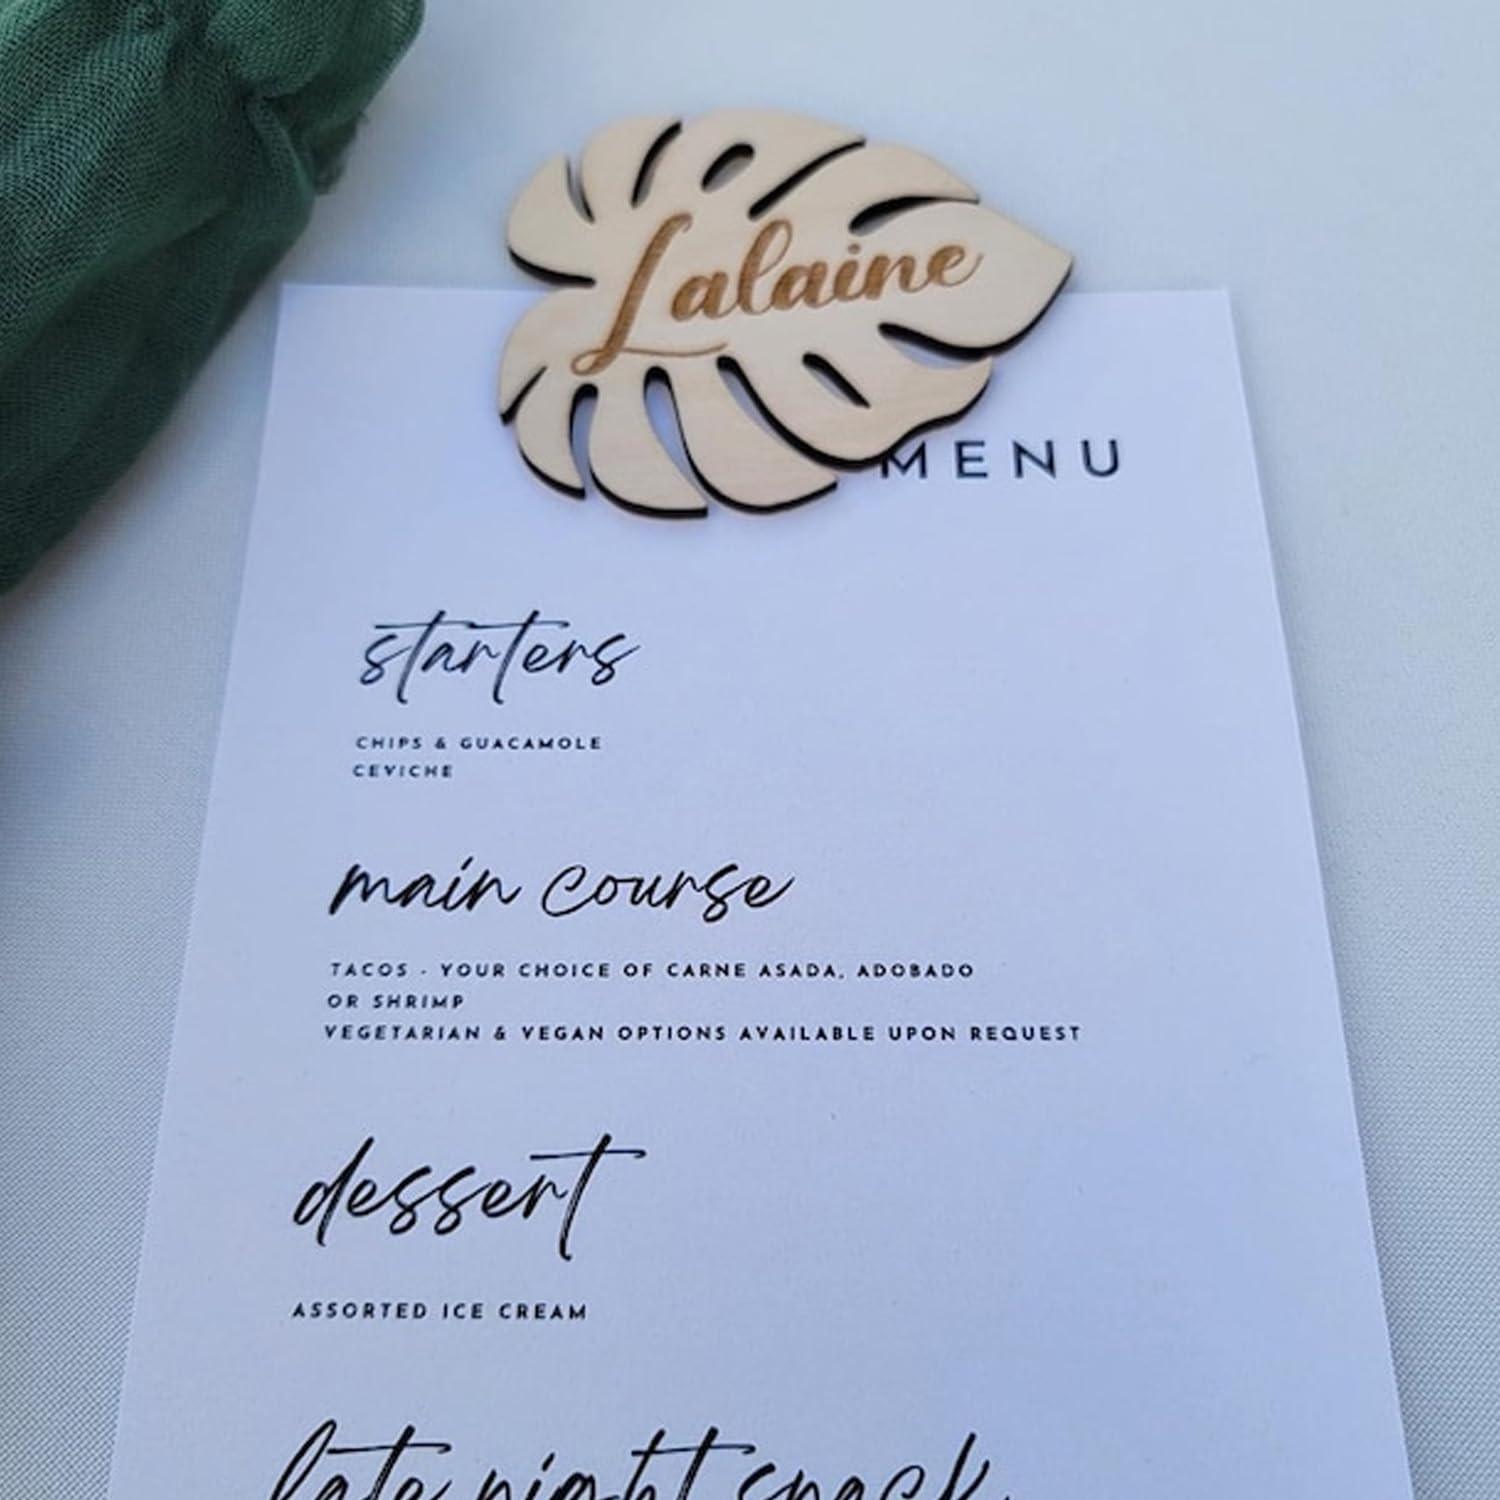 Lalaine
MENU
starters
CHIPS & GUACAMOLE
CEVICHE
main course
TACOS - YOUR CHOICE OF CARNE ASADA, ADOBADO
OR SHRIMP
VEGETARIAN & VEGAN OPTIONS AVAILABLE UPON REQUEST
dessert
ASSORTED ICE CREAM
late night snack